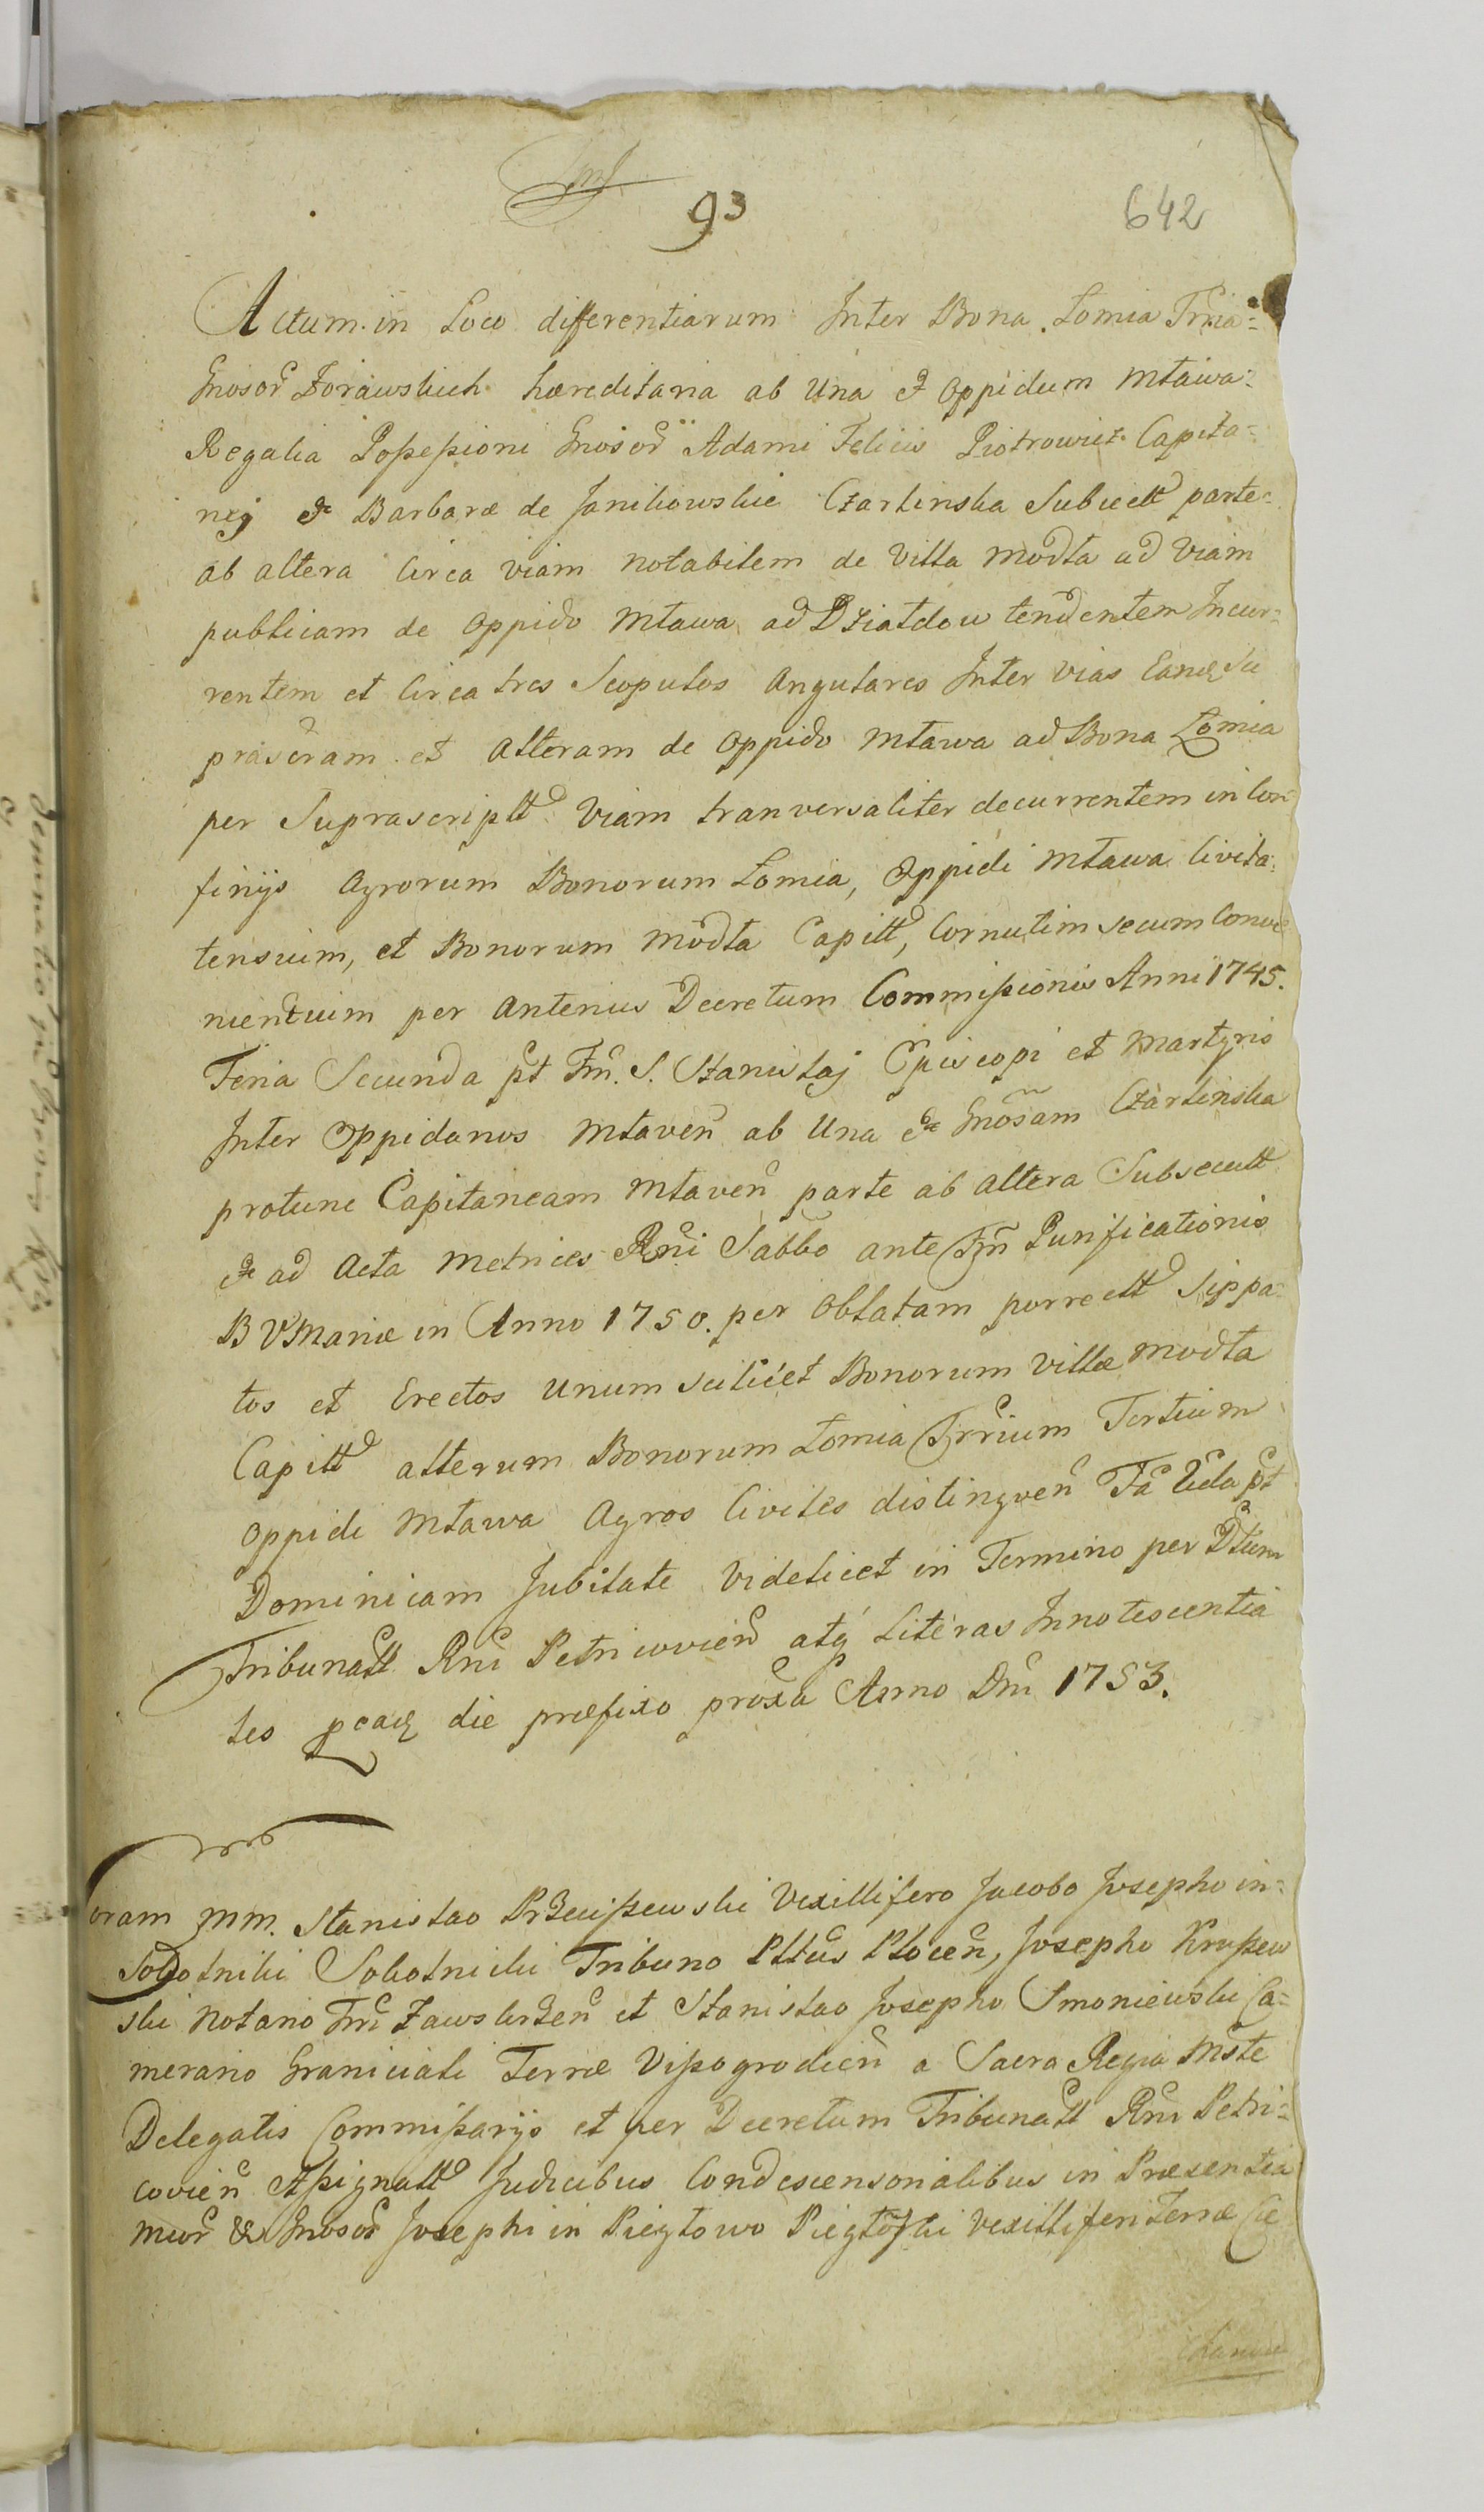 93
642
Actum in Loco differentiarum Inter Bona Łomia Trria=
Gnosor Zorawskich hæreditaria ab Una et Oppidum Mława=
Regalia Possessioni Gnosor Adami Felicis Piotrowicz Capita=
nej & Barbaræ de Janikowskie Czarlinska Subiectt parte=
ab altera Circa viam notabilem de Villa Modła ad Viam
publicam de Oppido Mława ad Dział­dow tendentem Incur=
rentem et Circa tres Scopulos Angulares Inter vias Eanq Su
prascram et Alteram de Oppido Mława ad Bona Łomia
per Suprascriptt Viam tranversaliter decurrentem in Con=
finijs Agrorum Bonorum Łomia, Oppidi Mława Civita=
tensium, et Bonorum Modła Capitt, Cornutim secum Conve
nientium per Anterius Decretum Commissionis Anni 1745.
Feria Secunda pt Fm. S. Stanislaj Episcopi et Martyris
Inter Oppidanos Mlaven ab Una & Gnosam Czarlinska
protunc Capitaneam Mlaven parte ab altera Subsecutt
& ad Acta Metrices Rni Sabbo ante Fm Purificationis
B V Mariæ in Anno 1750. per Oblatam porrectt Sippa=
tos et Erectos Unum scilicet Bonorum Villæ Modła
Capitt alterum Bonorum Łomia Trrium Tertium
Oppidi Mława Agros Civiles distingven Fa 2da pt
Dominicam Jubilate Videlicet in Termino per Dtum
Tribunatt Rni Petricovien atq Literas Innotescentia
les pcaq die præfixo proxa Anno Dni 1753.
Coram MM. Stanislao Przeciszewski Vexillifero Jacobo Josepho in=
Sobotniki Sobotnicki Tribuno Plttus Plocen, Josepho Krussew
ski Notario Trri Zawskrzen et Stanislao Josepho Smoniewski Ca=
merario Graniciali Terræ Vissogrodien a Sacra Regia Mste
Delegatis Commissarijs et per Decretum Tribunatt Rni Petri=
covien Assignatt Judicibus Condescensorialibus in Præsentia
Mcor & Gnosor Josephi in Pieglowo Pieglowski Vexilliferi Terræ Cie
chanov